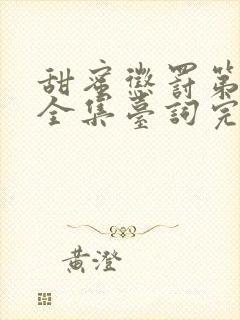 甜蜜懲罰第
全集臺詞完
黃澄